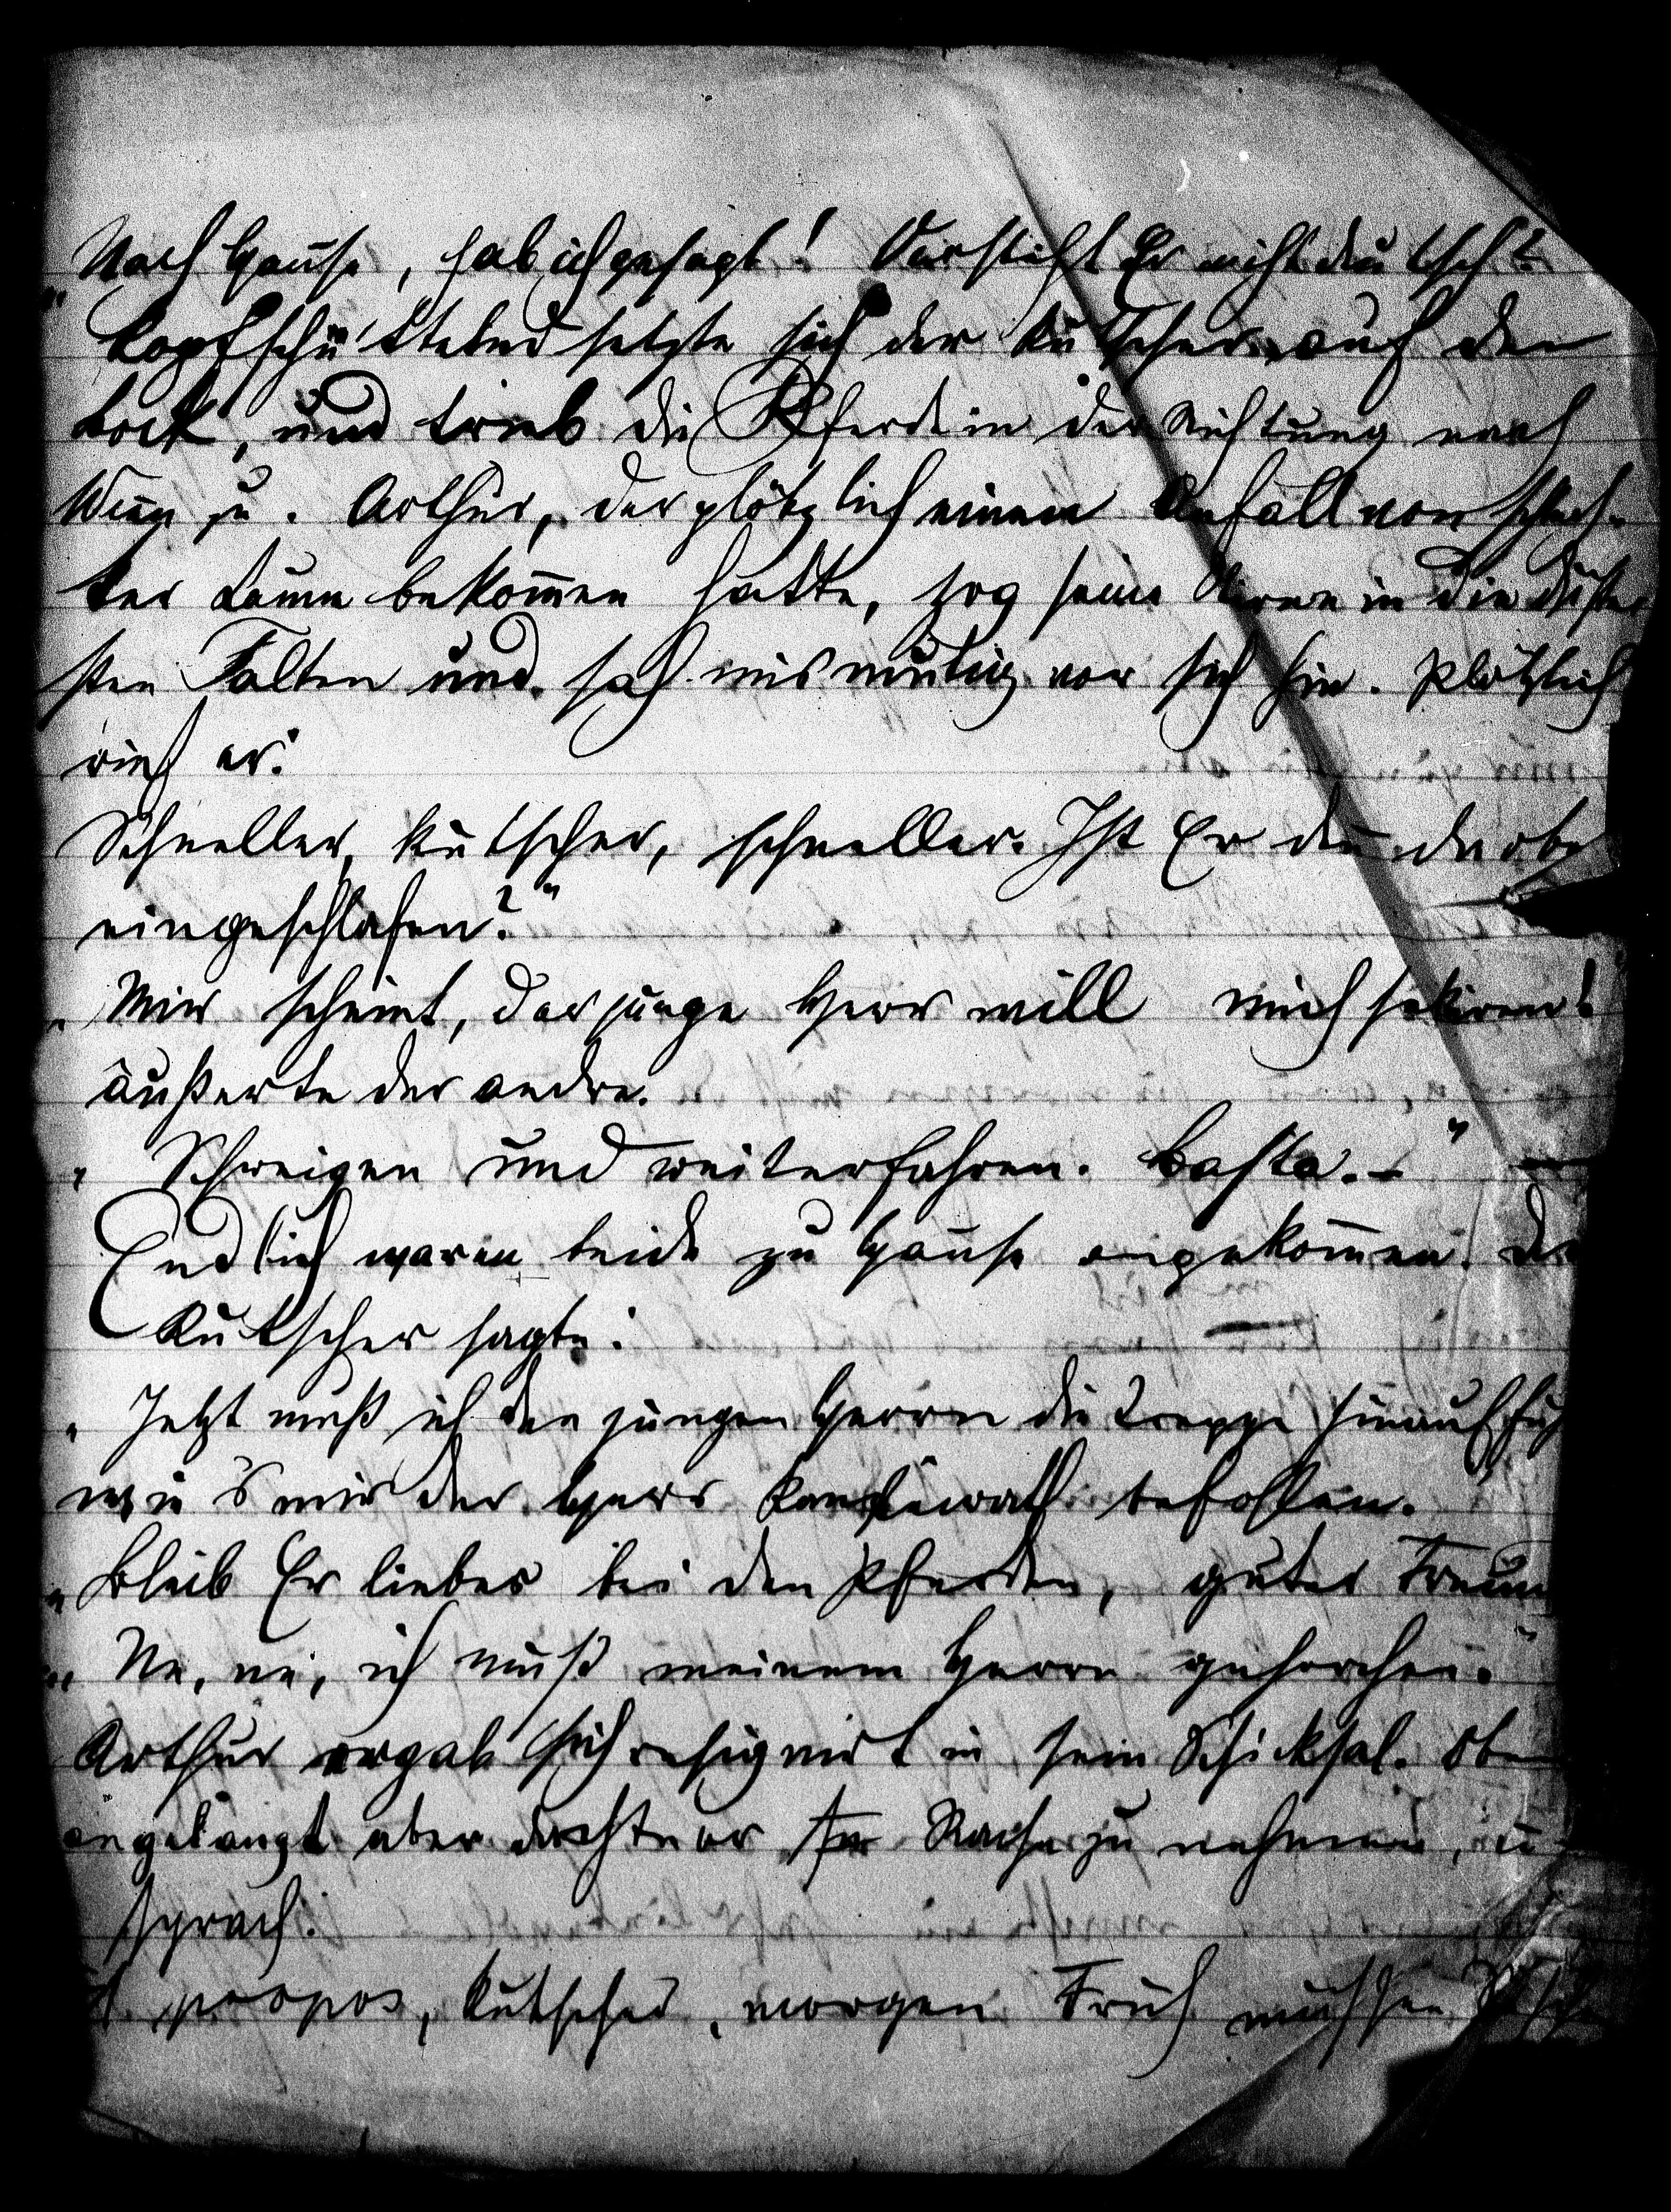 „Nach Hause, hab ich gesagt! Versteht Er nicht deutsch?
Kopfschüttelnd setzte sich der Kutscher auf den
Bock, und trieb die Pferde in der Richtung nach
Wien zu. Arthur, der plötzlich einen Anfall von schlech-
ter Laune bekommen hatte, zog seine Stirne in die düster
sten Falten und sah mismutig vor sich hin. Plötzlich
rief er:
Schneller, Kutscher, schneller. Ist Er den da obe
eingeschlafen?"
„Mir scheint, der junge Herr will mich sekiren!
äußerte der andre.
„Schweigen und weiterfahren. Basta.–"
Endlich waren beide zu Hause angekommen. De
Kutscher sagte:
„Jetzt muß ich den jungen Herrn die Treppe hinauffüh
wie's mir der Herr befohlen.
„Bleib Er lieber bei den Pferden, guter Freun
„Ne, ne, ich muß meinem Herrn gehorchen."
Arthur ergab sich resignirt in sein Schicksal. Oben
angelangt aber dachte er Rache zu nehmen, u
sprach:
A propos, Kutscher, morgen Früh müssen